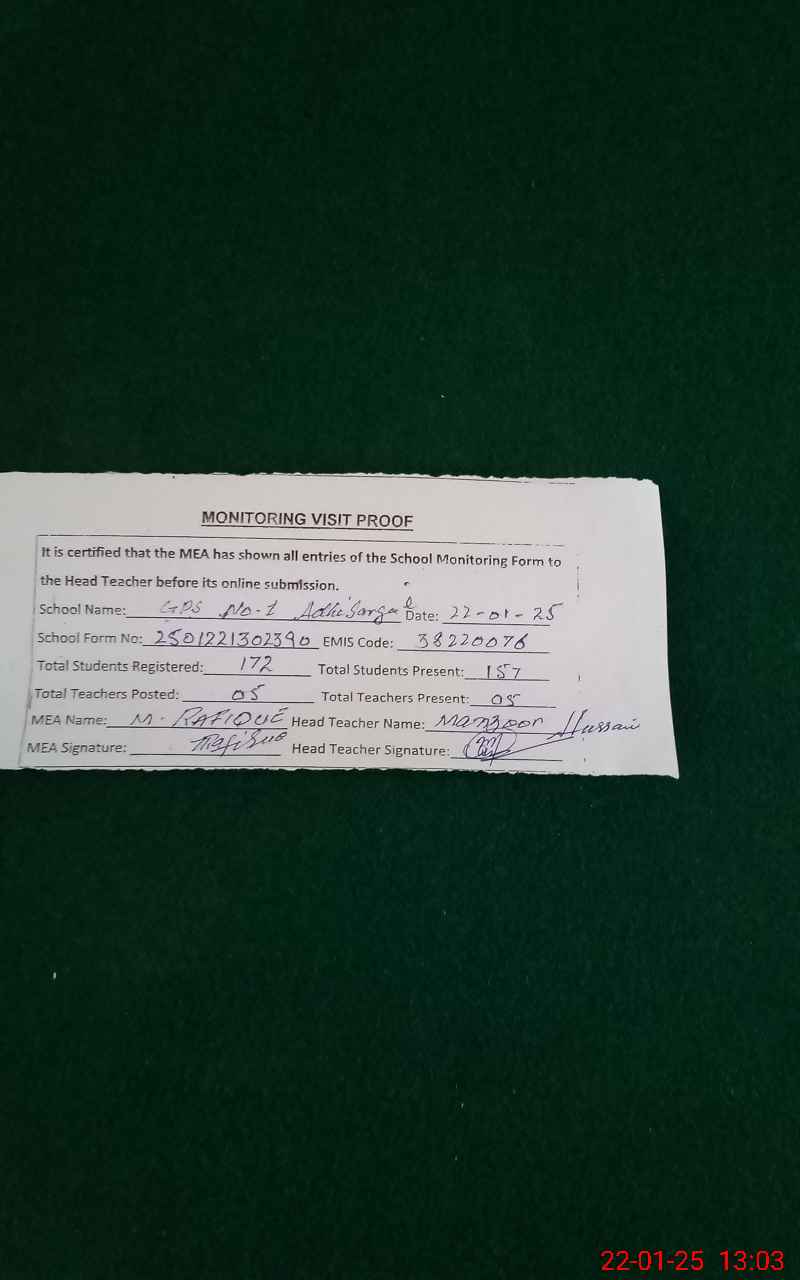 MONITORING VISIT PROOF
It is certified that the MEA has shown all entries of the School Monitoring Form to
the Head Teacher before its online submission.
School Name: GPS No-1 Adhi Sargal Date: 22-01-25
School Form No: 2501221302390 EMIS Code: 38220076
Total Students Registered: 172 Total Students Present: 157
Total Teachers Posted: 05 Total Teachers Present: 05
MEA Name: M. RAFIQUE Head Teacher Name: Manzoor Hussain
MEA Signature: Rafique Head Teacher Signature:
22-01-25 13:03